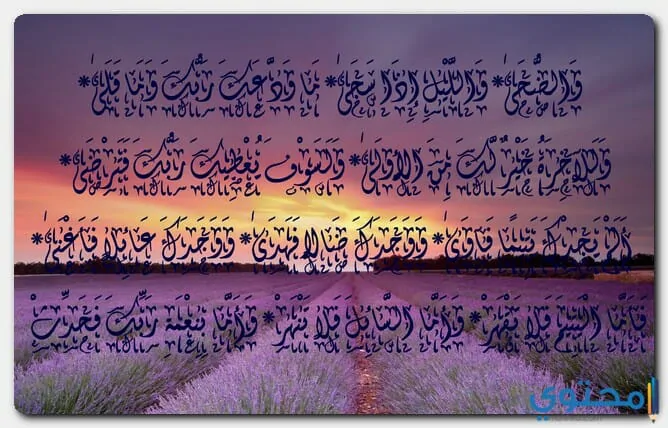 وَالضُّحَىٰ * وَاللَّيْلِ إِذَا سَجَىٰ * مَا وَدَّعَكَ رَبُّكَ وَمَا قَلَىٰ *
وَلَلْآخِرَةُ خَيْرٌ لَّكَ مِنَ الْأُولَىٰ * وَلَسَوْفَ يُعْطِيكَ رَبُّكَ فَتَرْضَىٰ *
أَلَمْ يَجِدْكَ يَتِيمًا فَآوَىٰ * وَوَجَدَكَ ضَالًّا فَهَدَىٰ * وَوَجَدَكَ عَائِلًا فَأَغْنَىٰ *
فَأَمَّا الْيَتِيمَ فَلَا تَقْهَرْ * وَأَمَّا السَّائِلَ فَلَا تَنْهَرْ * وَأَمَّا بِنِعْمَةِ رَبِّكَ فَحَدِّثْ
محتوى